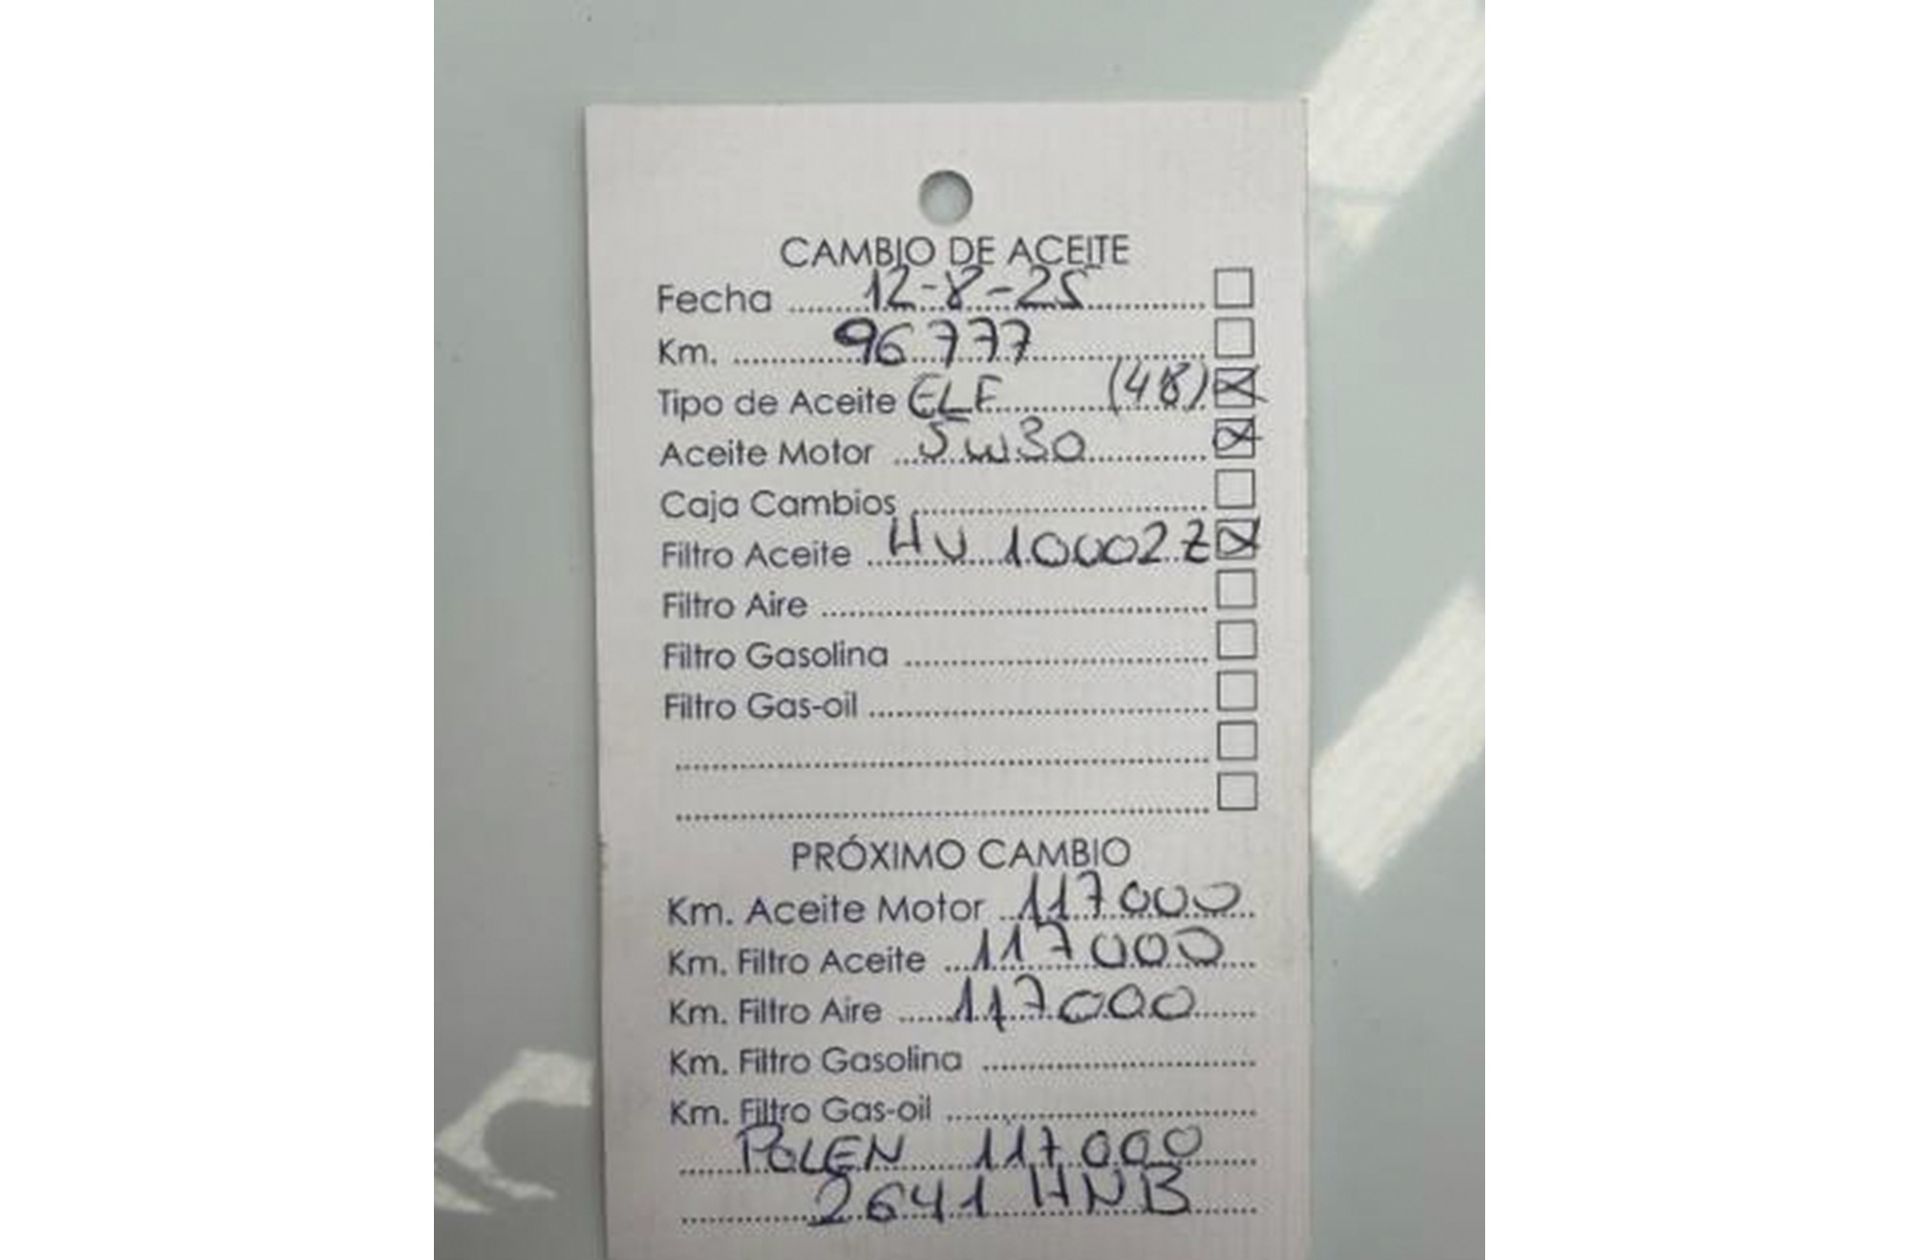 CAMBIO DE ACEITE
Fecha 12-8-25
Km. 96777
Tipo de Aceite ELF (48)
Aceite Motor 5W30
Caja Cambios
Filtro Aceite HU 10002Z
Filtro Aire
Filtro Gasolina
Filtro Gas-oil
PRÓXIMO CAMBIO
Km. Aceite Motor 117000
Km. Filtro Aceite 117000
Km. Filtro Aire 117000
Km. Filtro Gasolina
Km. Filtro Gas-oil
POLEN 117000
2641 HNB